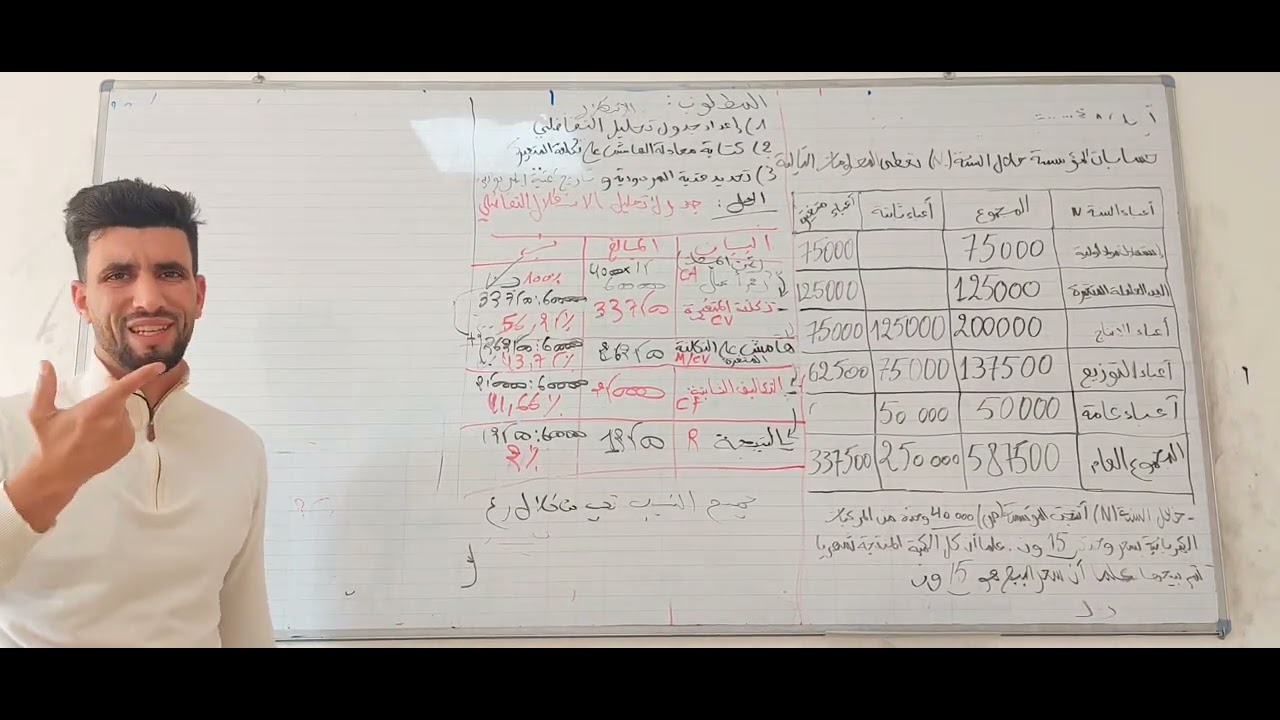 حسابات المؤسسة خلال السنة (N) تعطى المعلومات التالية
أعباء السنة N المجموع أعباء ثابتة أعباء متغيرة
75000 75000
اليد العاملة المتغيرة 125000 125000
أعباء الإنتاج 200000 125000 75000
أعباء التوزيع 137500 75000 62500
أعباء عامة 50000 50 000
المجموع العام 587500 250 000 337500
- خلال السنة (N) أنتجت المؤسسة 40 000 وحدة من المركبات
15 ون. علما أن كل الكمية المنتجة
تم بيعها علما أن سعر البيع هو 15 ون
المطلوب:
1) إعداد جدول تحليل التفاضلي
2) كتابة معادلة الهامش على تكلفة المتغيرة
3) تحديد عتبة المردودية و تاريخ عتبة
الحل: جدول تحليل الاستغلال التفاضلي
البيان المبالغ
رقم أعمال CA 100%
تكلفة المتغيرة CV 337500 337500:600000
56,25%
هامش على التكلفة المتغيرة M/CV 262500 262500:600000
43,75%
التكاليف الثابتة CF 250000 250000:600000
41,66%
النتيجة R 12500 12500:600000
2%
جميع النسب من خلال رع